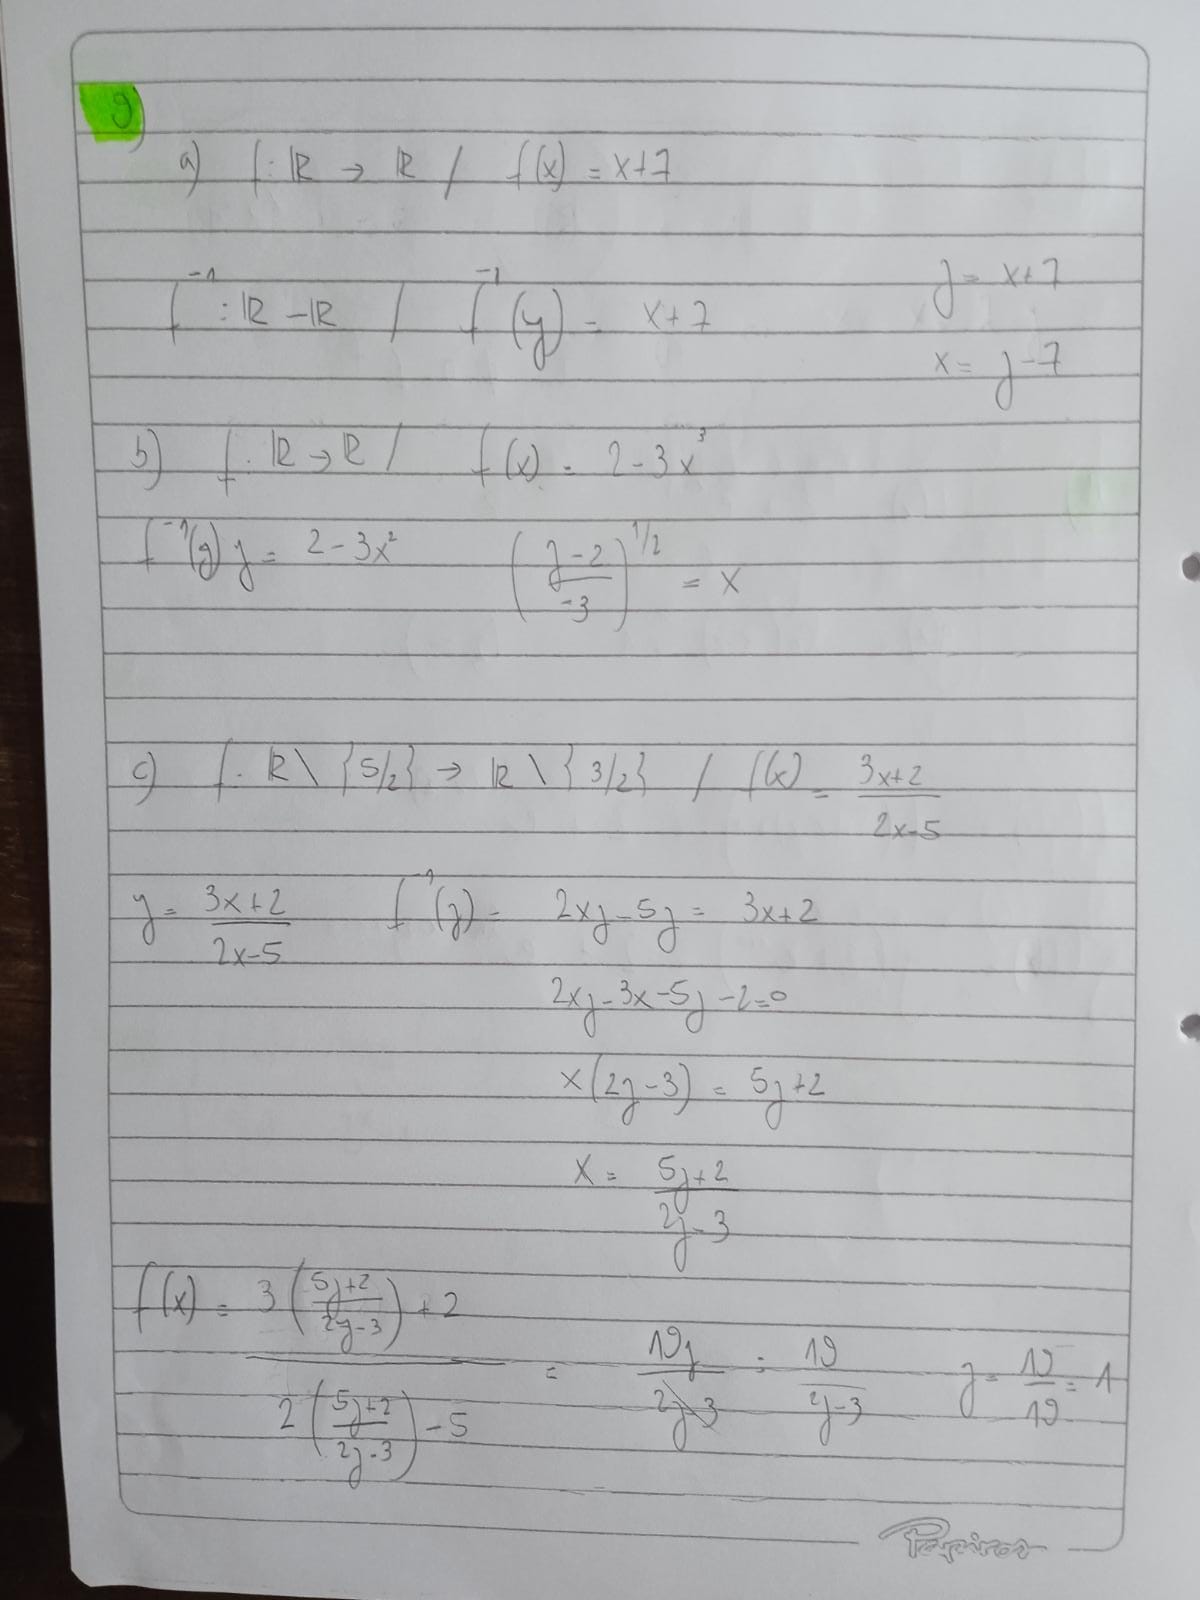 9
a) f: ℝ → ℝ / f(x) = x+7
y = x+7
f⁻¹: ℝ – ℝ / f⁻¹(y) = x+7
x = y-7
b) f: ℝ → ℝ / f(x) = 2-3x³
f⁻¹(y) y = 2-3x² ((y-2)/-3)^1/2 = x
c) f. ℝ\{5/2} → ℝ\{3/2} / f(x) = (3x+2)/(2x-5)
y = (3x+2)/(2x-5) f⁻¹(y) = 2xy-5y = 3x+2
2xy-3x-5y-2=0
x(2y-3) = 5y+2
x = (5y+2)/(2y-3)
f(x) = (3((5y+2)/(2y-3))+2)/(2((5y+2)/(2y-3))-5) = (19y)/(2y-3) : 19/(2y-3) y = 19/19 = 1
Papiros